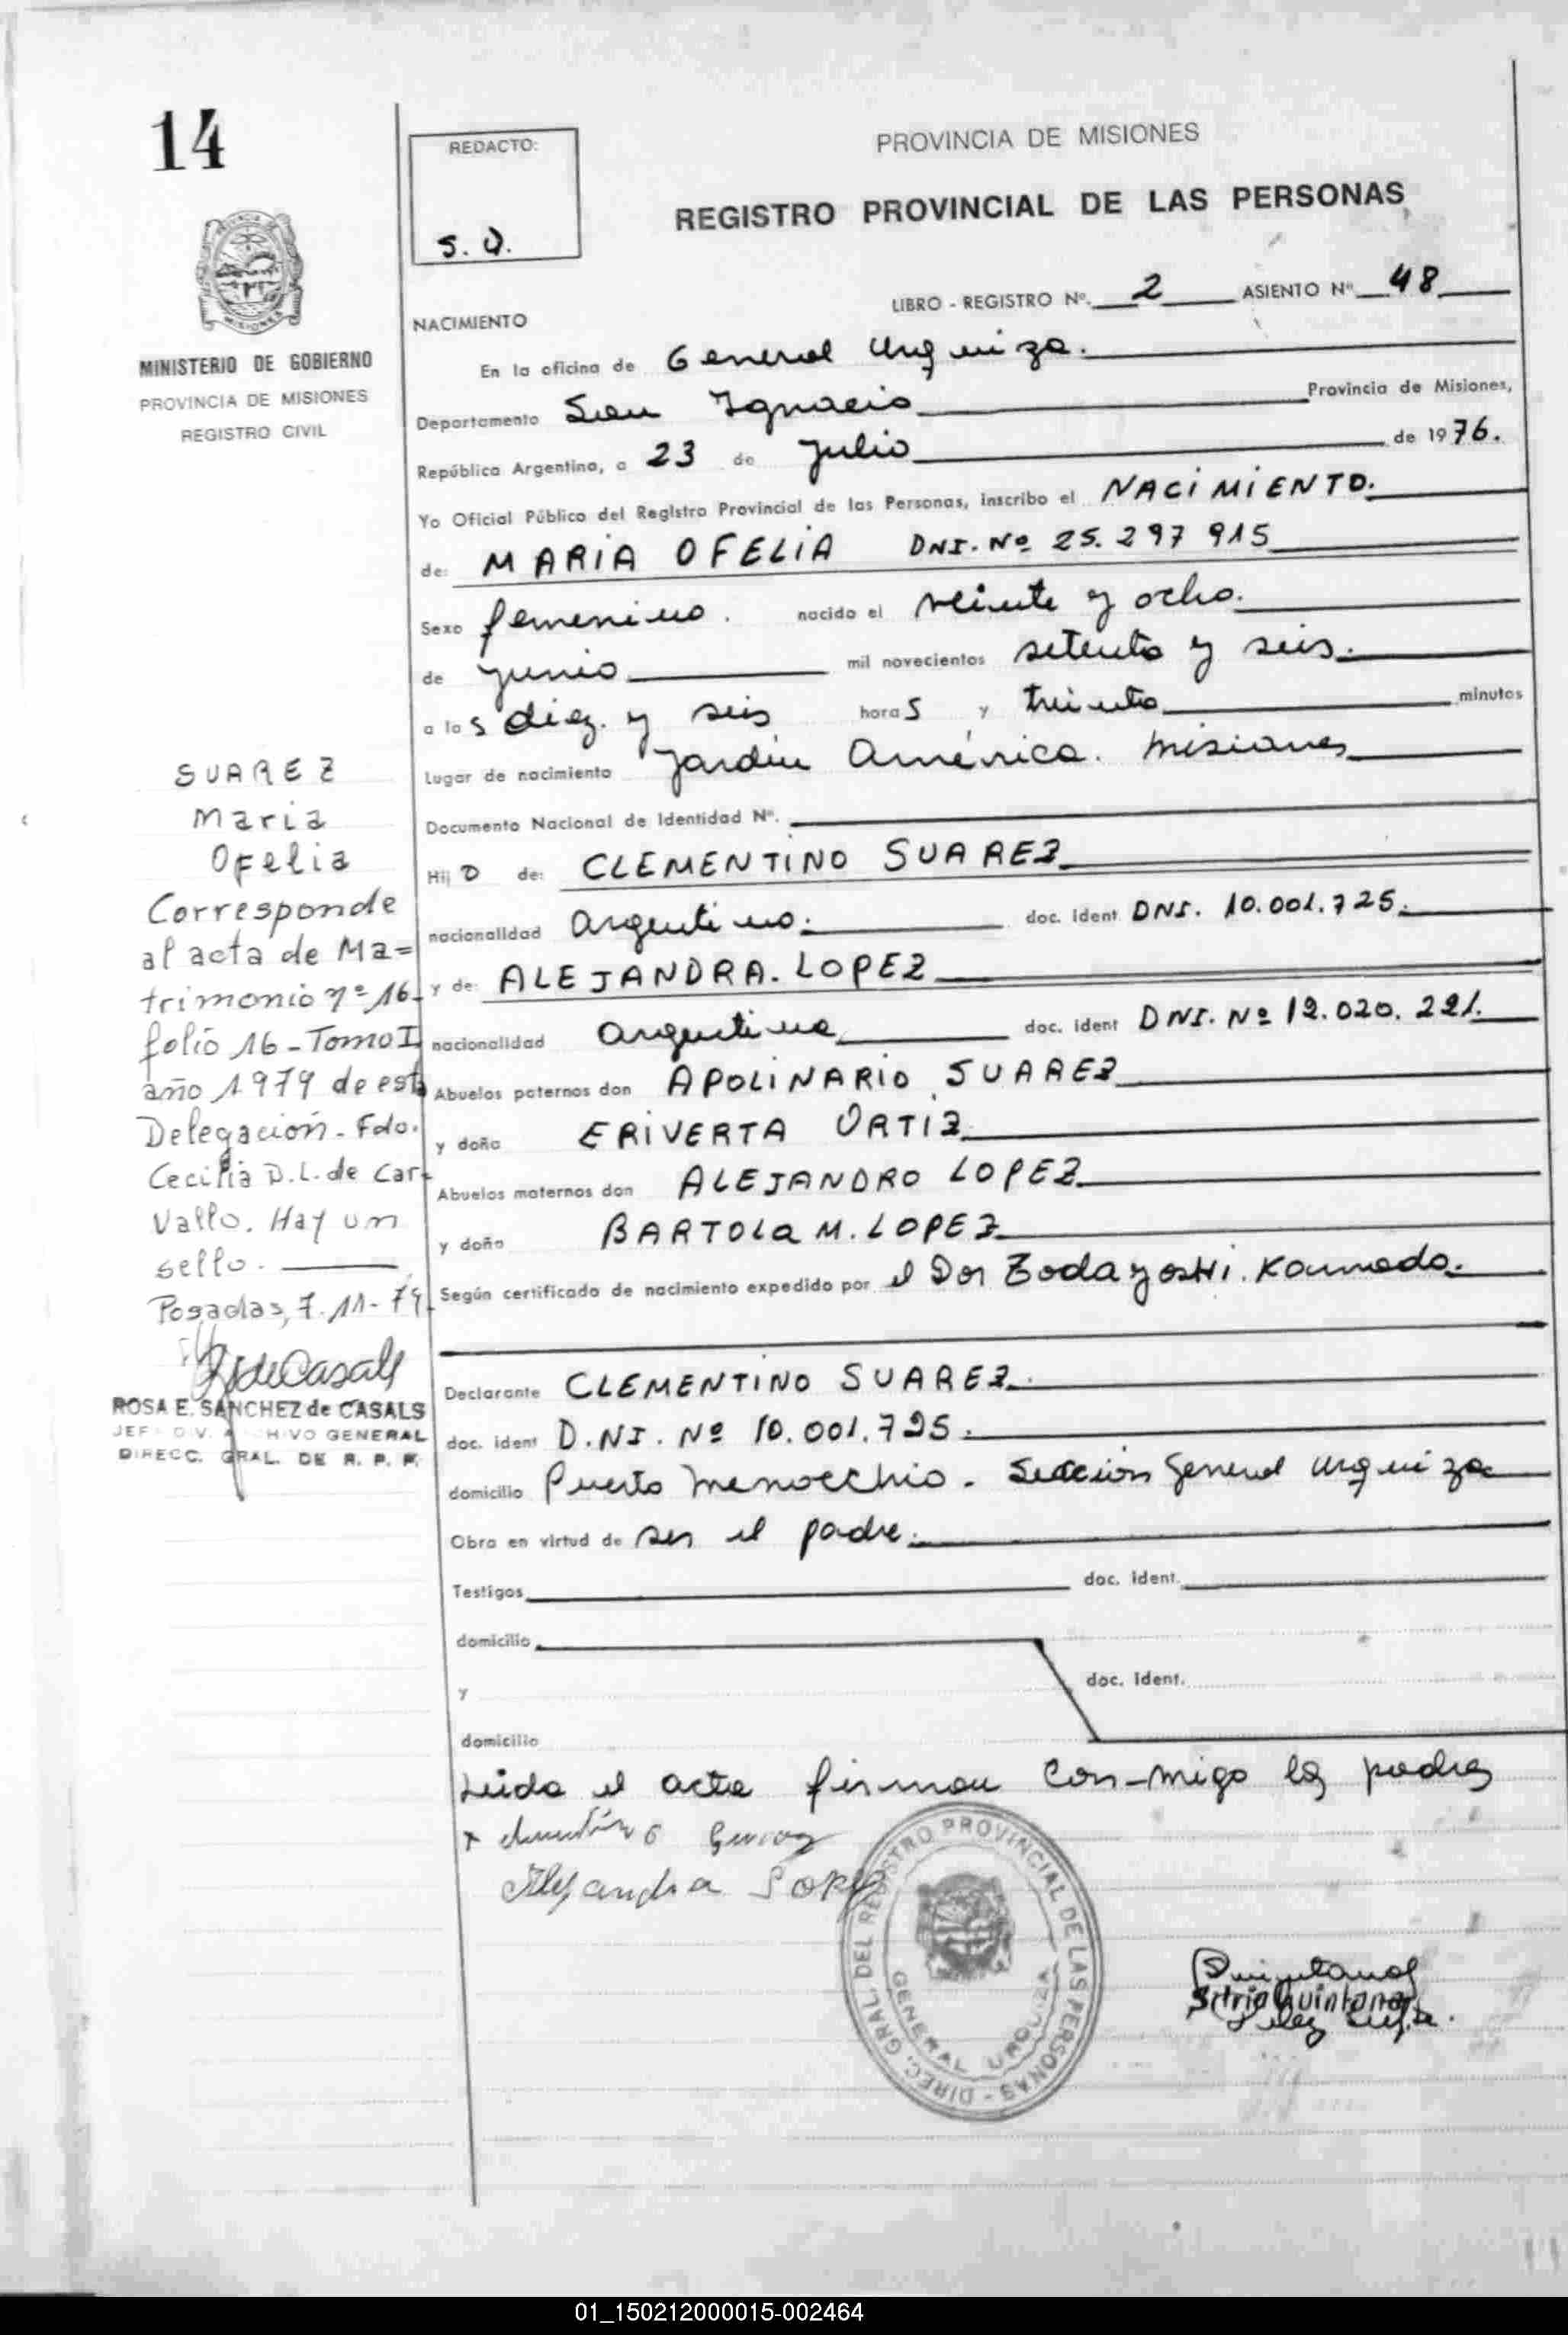 14
REDACTO:
S. Q.
PROVINCIA DE MISIONES
REGISTRO PROVINCIAL DE LAS PERSONAS
MINISTERIO DE GOBIERNO
PROVINCIA DE MISIONES
REGISTRO CIVIL
LIBRO - REGISTRO Nº. 2 ASIENTO Nº 48
NACIMIENTO
En la oficina de General Urquiza.
Departamento San Ignacio Provincia de Misiones,
República Argentina, a 23 de Julio de 1976.
Yo Oficial Público del Registro Provincial de las Personas, inscribo el NACIMIENTO.
de: MARIA OFELIA DNI. Nº 25.297 915
Sexo femenino. nacido el veinte y ocho.
de junio mil novecientos setenta y seis.
a las diez. y seis horas y treinta minutos
Lugar de nacimiento Jardín América. Misiones
Documento Nacional de Identidad Nº.
Hijo de: CLEMENTINO SUAREZ
nacionalidad Argentino. doc. ident DNI. 10.001.725.
y de: ALEJANDRA. LOPEZ
nacionalidad argentina doc. ident DNI. Nº 12.020.221.
Abuelos paternos don APOLINARIO SUAREZ
y doña ERIVERTA ORTIZ
Abuelos maternos don ALEJANDRO LOPEZ
y doña BARTOLA M. LOPEZ
Según certificado de nacimiento expedido por el Dor Zodayoshi. Kamado.
Declarante CLEMENTINO SUAREZ.
doc. ident D.NI. Nº 10.001.725.
domicilio Puerto Menocchio - Sección General Urquiza
Obra en virtud de ser el padre.
Testigos doc. ident.
domicilio
y doc. ident.
domicilio
Leída el acta firman con-migo los padres
Alejandra Lopez
DIREC. GRAL. DEL REGISTRO PROVINCIAL DE LAS PERSONAS -
GENERAL URQUIZA
Quintana
Silvio Quintana
SUAREZ
Maria
Ofelia
Corresponde
al acta de Ma=
trimonio nº 16-
folio 16 - Tomo I
año 1979 de esta
Delegación - Fdo.
Cecilia D. L. de Car-
vallo. Hay un
sello.
Posadas, 7-11-79.
ROSA E. SANCHEZ de CASALS
JEF DIV. ARCHIVO GENERAL
DIRECC. GRAL. DE R. P. P.
01_150212000015-002464